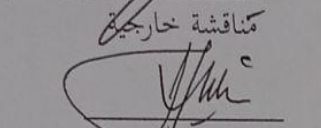 مناقشة خارجية